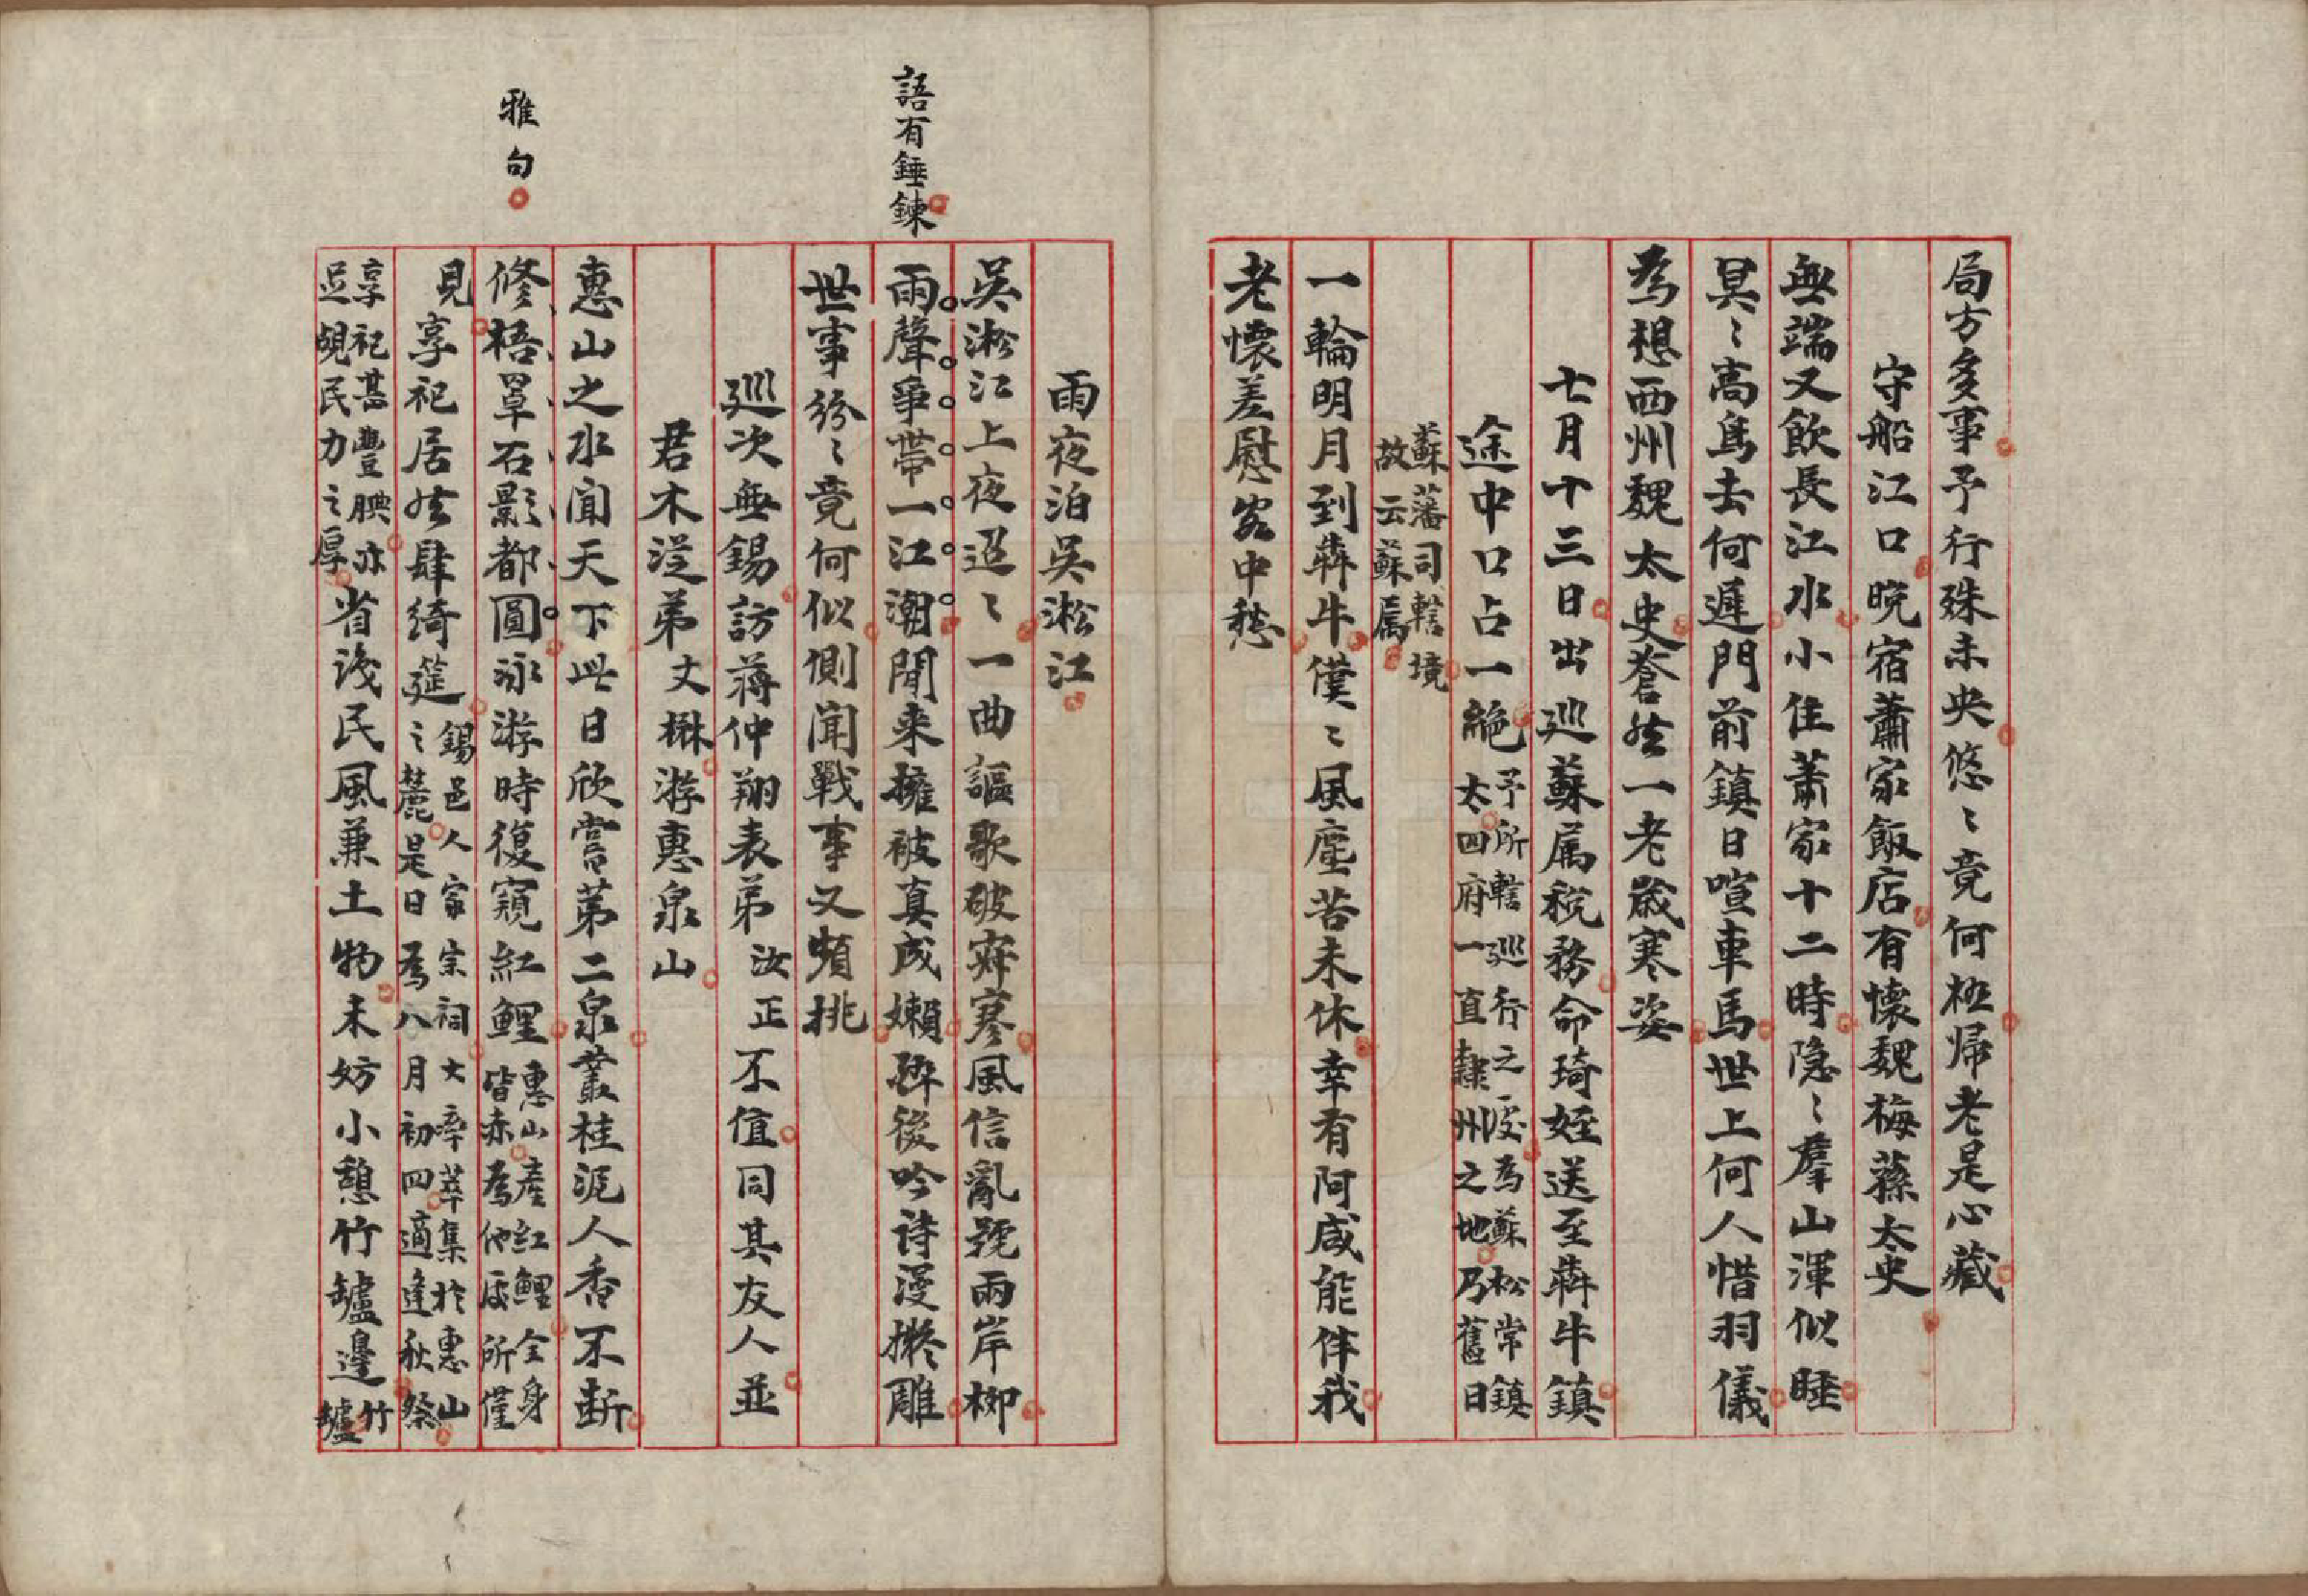 局方多事予行殊未央悠〻竟何極歸老是心藏
守船江口晚宿蕭家飯店有懷魏梅蓀太史
無端又飲長江水小住蕭家十二時隐〻羣山渾似睡
冥〻高鳥去何遲門前鎮日喧車馬世上何人惜羽儀
為想西州魏太史蒼然一老歲寒姿
七月十三日出巡蘇属税務命琦姪送至犇牛鎮
途中口占一絶
予所轄巡行之一段為蘇松常鎮
太四府一直隸州之地乃舊日
蘇藩司轄境
故云蘇属
一輪明月到犇牛僕〻風塵苦未休幸有阿咸能伴我
老懷差慰客中愁
雨夜泊吳淞江
吳淞江上夜迢〻一曲謳歌破寂寥風信亂號兩岸栁
雨聲爭帶一江潮閒来擁被真成嬾醉後吟詩漫擬雕
語有錘鍊
世事紛〻竟何似側聞戰事又頻挑
巡次無錫訪蔣仲翔表弟汝正不值同其友人並
君木從弟丈楙游惠泉山
惠山之水聞天下此日欣嘗第二泉叢桂泥人香不断
修梧罩石影都圓泳游時復窺紅鯉
惠山產紅鯉全身
皆赤為他處所僅
見
雅句
享祀居然肆綺筵之麗
錫邑人家宗祠大率萃集於惠山
是日為八月初四適逢秋祭
享祀甚豐腆亦
足覘民力之厚
省識民風兼土物未妨小憩竹罏邊
竹
罏